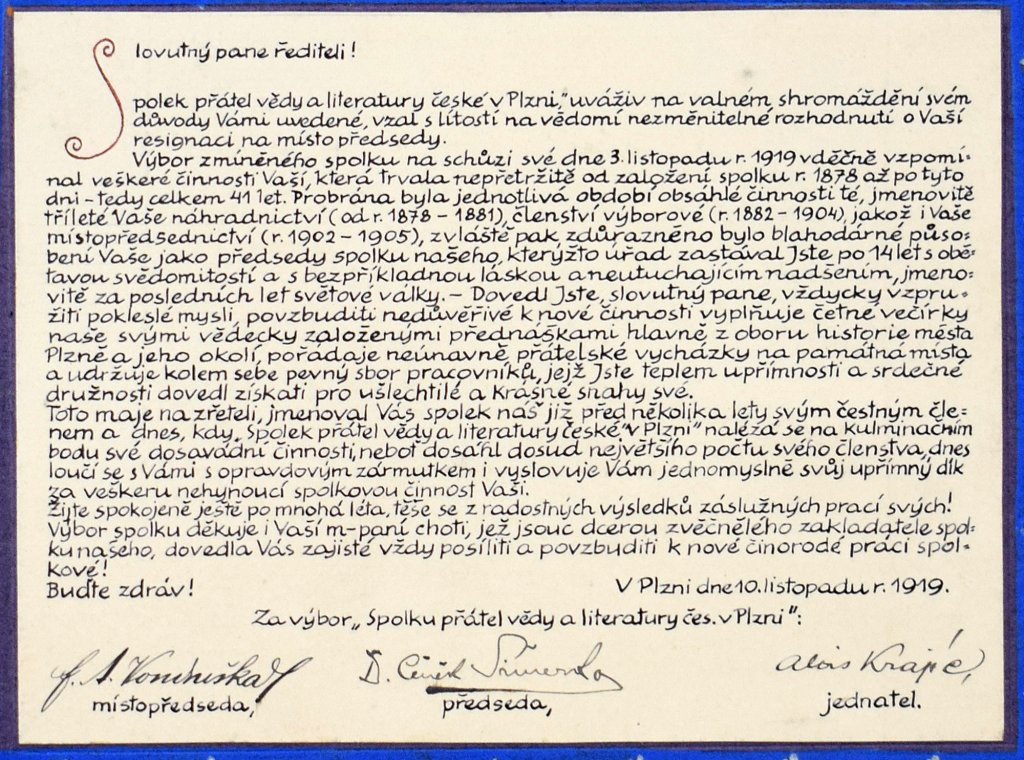 Slovutný pane řediteli!
Spolek přátel vědy a literatury české v Plzni," uváživ na valném shromáždění svém
důvody Vámi uvedené, vzal s lítostí na vědomí nezměnitelné rozhodnutí o Vaší
resignaci na místo předsedy.
Výbor zmíněného spolku na schůzi své dne 3. listopadu r. 1919 vděčně vzpomí-
nal veškeré činnosti Vaší, která trvala nepřetržitě od založení spolku r. 1878 až po tyto
dni – tedy celkem 41 let. Probrána byla jednotlivá období obsáhlé činnosti té, jmenovitě
tříleté Vaše náhradnictví (od r. 1878 – 1881), členství výborové (r. 1882 – 1904), jakož i Vaše
místopředsednictví (r. 1902 – 1905), zvláště pak zdůrazněno bylo blahodárné půso-
bení Vaše jako předsedy spolku našeho, kterýžto úřad zastával Jste po 14 let s obě-
tavou svědomitostí a s bezpříkladnou láskou a neutuchajícím nadšením, jmeno-
vitě za posledních let světové války. – Dovedl Jste, slovutný pane, vždycky vzpru-
žiti pokleslé mysli, povzbuditi nedůvěřivé k nové činnosti vyplňuje četné večírky
naše svými vědecky založenými přednáškami hlavně z oboru historie města
Plzně a jeho okolí, pořádaje neúnavně přátelské vycházky na památná místa
a udržuje kolem sebe pevný sbor pracovníků, jejž Jste teplem upřímnosti a srdečné
družnosti dovedl získati pro ušlechtilé a krásné snahy své.
Toto maje na zřeteli, jmenoval Vás spolek náš již před několika lety svým čestným čle-
nem a dnes, kdy „Spolek přátel vědy a literatury české v Plzni" nalézá se na kulminačním
bodu své dosavádní činnosti, neboť dosáhl dosud největšího počtu svého členstva, dnes
loučí se s Vámi s opravdovým zármutkem i vyslovuje Vám jednomyslně svůj upřímný dík
za veškeru nehynoucí spolkovou činnost Vaši.
Žijte spokojeně ještě po mnohá léta, těše se z radostných výsledků záslužných prací svých!
Výbor spolku děkuje i Vaší m-paní choti, jež jsouc dcerou zvěčnělého zakladatele spol-
ku našeho, dovedla Vás zajisté vždy posíliti a povzbuditi k nové činorodé práci spol-
kové!
Buďte zdráv! V Plzni dne 10. listopadu r. 1919.
Za výbor „Spolku přátel vědy a literatury čes. v Plzni":
f. A. Vondruška D. Čeněk Šimerka Alois Krajíc,
místopředseda, předseda, jednatel.